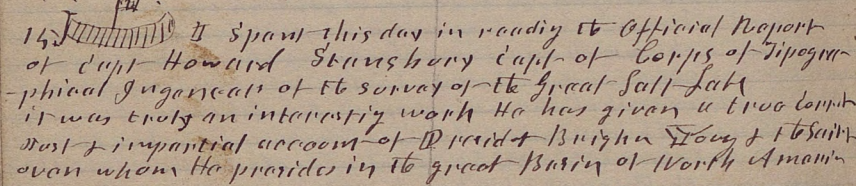 15 I spent this day in readig the Official Report
of Capt Howard Stansbury Capt of Corps of Topogra-
-phical Ingeneers of the survey of the Great Salt Lake
it was truly an interestig work He has given a true Correct
Just & impartial account of Presidet Brigha Young & the Saints
over whom He presides in the great Basin of North America